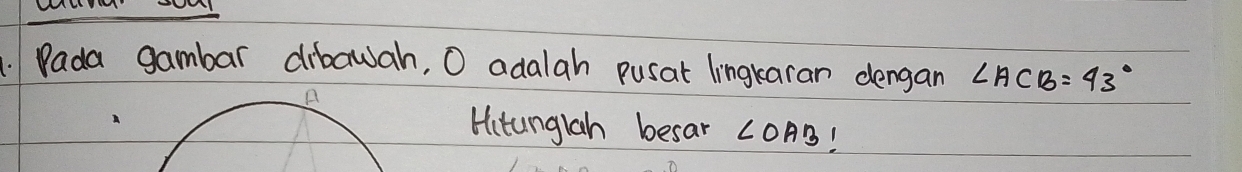 Latihan soal
1. Pada gambar dibawah, O adalah pusat lingkaran dengan ∠ACB = 43°
Hitunglah besar ∠OAB!
A